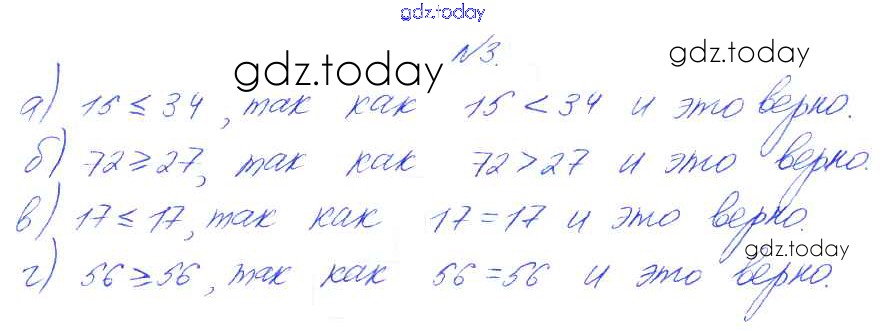 gdz.today
№3.
gdz.today gdz.today
а) 15 ≤ 34, так как 15 < 34 и это верно.
б) 72 ≥ 27, так как 72 > 27 и это верно.
в) 17 ≤ 17, так как 17 = 17 и это верно.
gdz.today
г) 56 ≥ 56, так как 56 = 56 и это верно.